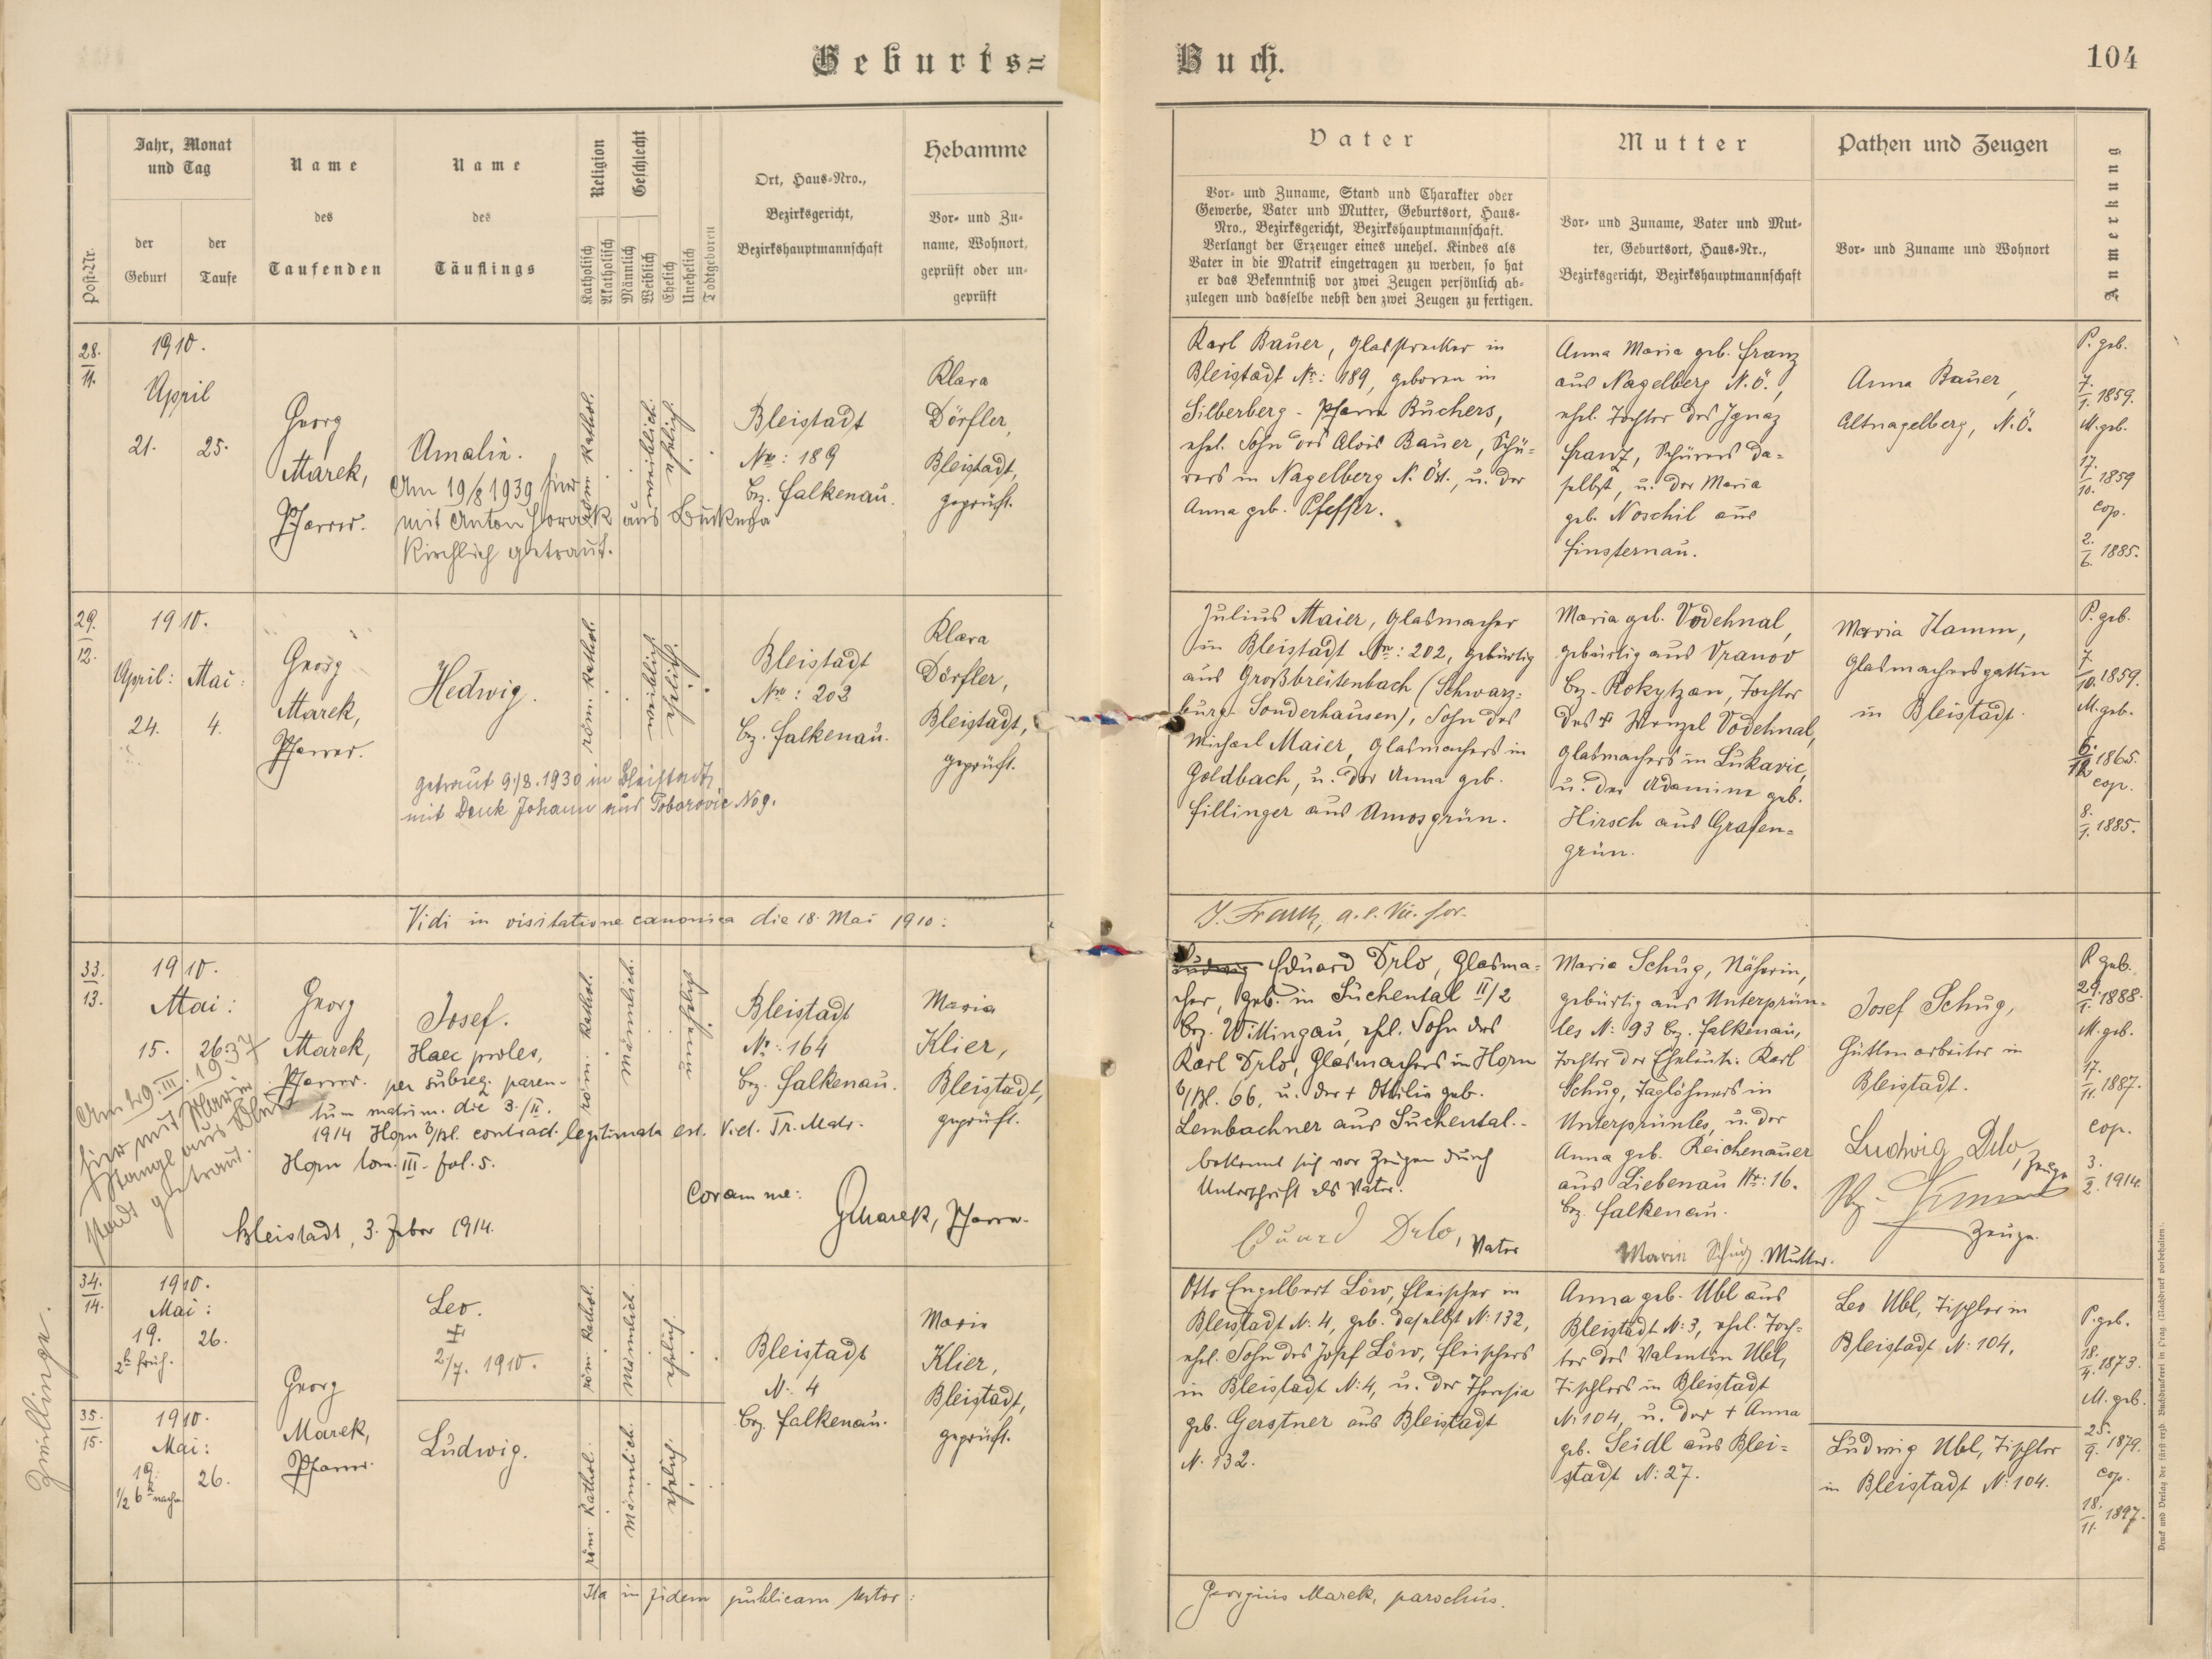 Geburts=
Buch.
104
Post-Nr.
Jahr, Monat
und Tag
der
Geburt
der
Taufe
Name
des
Taufenden
Name
des
Täuflings
Religion
Katholisch
Akatholisch
Geschlecht
Männlich
Weiblich
Ehelich
Unehelich
Todtgeboren
Ort, Haus-Nro.,
Bezirksgericht,
Bezirkshauptmannschaft
Hebamme
Vor- und Zu-
name, Wohnort,
geprüft oder un-
geprüft
Vater
Vor- und Zuname, Stand und Charakter oder
Gewerbe, Vater und Mutter, Geburtsort, Haus-
Nro., Bezirksgericht, Bezirkshauptmannschaft.
Verlangt der Erzeuger eines unehel. Kindes als
Vater in die Matrik eingetragen zu werden, so hat
er das Bekenntniß vor zwei Zeugen persönlich ab-
zulegen und dasselbe nebst den zwei Zeugen zu fertigen.
Mutter
Vor- und Zuname, Vater und Mut-
ter, Geburtsort, Haus-Nr.,
Bezirksgericht, Bezirkshauptmannschaft
Pathen und Zeugen
Vor- und Zuname und Wohnort
Anmerkung
28.
11.
1910.
April
21. 25.
Georg
Marek,
Pfarrer.
Amalie.
Am 19/8 1939 hier
mit Anton aus
kirchlich getraut.
röm. kathol.
weiblich.
ehelich.
Bleistadt
Nro: 189
bez. Falkenau.
Klara
Dörfler,
Bleistadt,
geprüft.
Karl Bauer, Glasstrecker in
Bleistadt Nr: 189, geboren in
Silberberg - Pfarre Buchers,
ehel. Sohn des Alois Bauer, Schü-
rers in Nagelberg N. Öst., u. der
Anna geb. Pfeffer.
Anna Maria geb. Franz
aus Nagelberg N.Ö.,
ehel. Tochter des Ignaz
Franz, Schürers da-
selbst, u. der Maria
geb. Noschil aus
Finsternau.
Anna Bauer,
Altnagelberg, N.Ö.
P. geb.
7.
1. 1859.
M. geb.
17.
10. 1859
cop.
2.
6. 1885.
29.
12.
1910.
April: Mai:
24. 4.
Georg
Marek,
Pfarrer.
Hedwig.
getraut 9./8. 1930 in Bleistadt
mit Denk Johann aus No 9.
röm. kathol.
weiblich
ehelich.
Bleistadt
Nro: 202
bez. Falkenau.
Klara
Dörfler,
Bleistadt,
geprüft.
Julius Maier, Glasmacher
in Bleistadt Nr: 202, gebürtig
aus Großbreitenbach (Schwarz-
burg-Sonderhausen), Sohn des
Michael Maier, Glasmachers in
Goldbach, u. der Anna geb.
Fillinger aus Amosgrün.
Maria geb. Vodehnal,
gebürtig aus Vranov
bez. Rokytzan, Tochter
des + Wenzel Vodehnal,
Glasmachers in Lukavic,
u. der Adamine geb.
Hirsch aus Grafen-
grün.
Maria Hamm,
Glasmachersgattin
in Bleistadt.
P. geb.
7.
10. 1859.
M. geb.
6.
12. 1865.
cop.
8.
1. 1885.
Vidi in visitatione canonica die 18. Mai 1910:
33.
13.
1910.
Mai:
15. 26.
Georg
Marek,
Pfarrer.
Josef.
Haec proles,
per subseq. paren-
tum matrim. die 3./II.
1914 Horn b/Bl. contract. legitimata est. Vid. Tr. Matr.
Horn tom. III. fol. 5.
Am 29. III. 1937
hier mit Maria
Stangl aus
getraut.
röm. kathol.
männlich.
unehelich
Bleistadt
Nr: 164
bez. Falkenau.
Maria
Klier,
Bleistadt,
geprüft.
Coram me:
GMarek, Pfarrer.
Bleistadt, 3. Feber 1914.
Ludwig Eduard Drlo, Glasma-
cher, geb. in Suchental II/2
bez. Wittingau, ehel. Sohn des
Karl Drlo, Glasmachers in Horn
b/Bl. 66, u. der + Ottilie geb.
Lembachner aus Suchental.
bekennt sich vor Zeugen durch
Unterschrift als Vater.
Eduard Drlo, Vater
Maria Schug, Näherin,
gebürtig aus Unterprün-
les N: 93 bez. Falkenau,
Tochter der Eheleute: Karl
Schug, Taglöhners in
Unterprünles, u. der
Anna geb. Reichenauer
aus Liebenau Nr: 16.
bez. Falkenau.
Maria Schug. Mutter.
Josef Schug,
Hüttenarbeiter in
Bleistadt.
Ludwig Drlo, Zeuge
Zeuge.
P. geb.
29.
1. 1888.
M. geb.
17.
11. 1887.
cop.
3.
2. 1914.
34.
14.
1910.
Mai:
19. 26.
2h früh.
Georg
Marek,
Pfarrer.
Leo.
+
2/7. 1910.
röm. kathol.
männlich.
ehelich.
Bleistadt
N: 4
bez. Falkenau.
Maria
Klier,
Bleistadt,
geprüft.
Zwillinge.
35.
15.
1910.
Mai:
19. 26.
1/2 6h nachm
Ludwig.
röm. kathol.
männlich.
ehelich.
Otto Engelbert Löw, Fleischer in
Bleistadt N: 4, geb. daselbst N: 132,
ehel. Sohn des Josef Löw, Fleischers
in Bleistadt N: 4, u. der Theresia
geb. Gerstner aus Bleistadt
N. 132.
Anna geb. Ubl aus
Bleistadt N: 3, ehel. Toch-
ter des Valentin Ubl,
Tischlers in Bleistadt
N: 104, u. der + Anna
geb. Seidl aus Blei-
stadt N: 27.
Leo Ubl, Tischler in
Bleistadt N: 104.
Ludwig Ubl, Tischler
in Bleistadt N: 104.
P. geb.
18.
4. 1873.
M. geb.
25.
9. 1879.
cop.
18.
11. 1897.
Ita in fidem publicam testor:
Georgius Marek, parochus.
Druck und Verlag der fürst-erzb. Buchdruckerei in Prag. (Nachdruck vorbehalten).